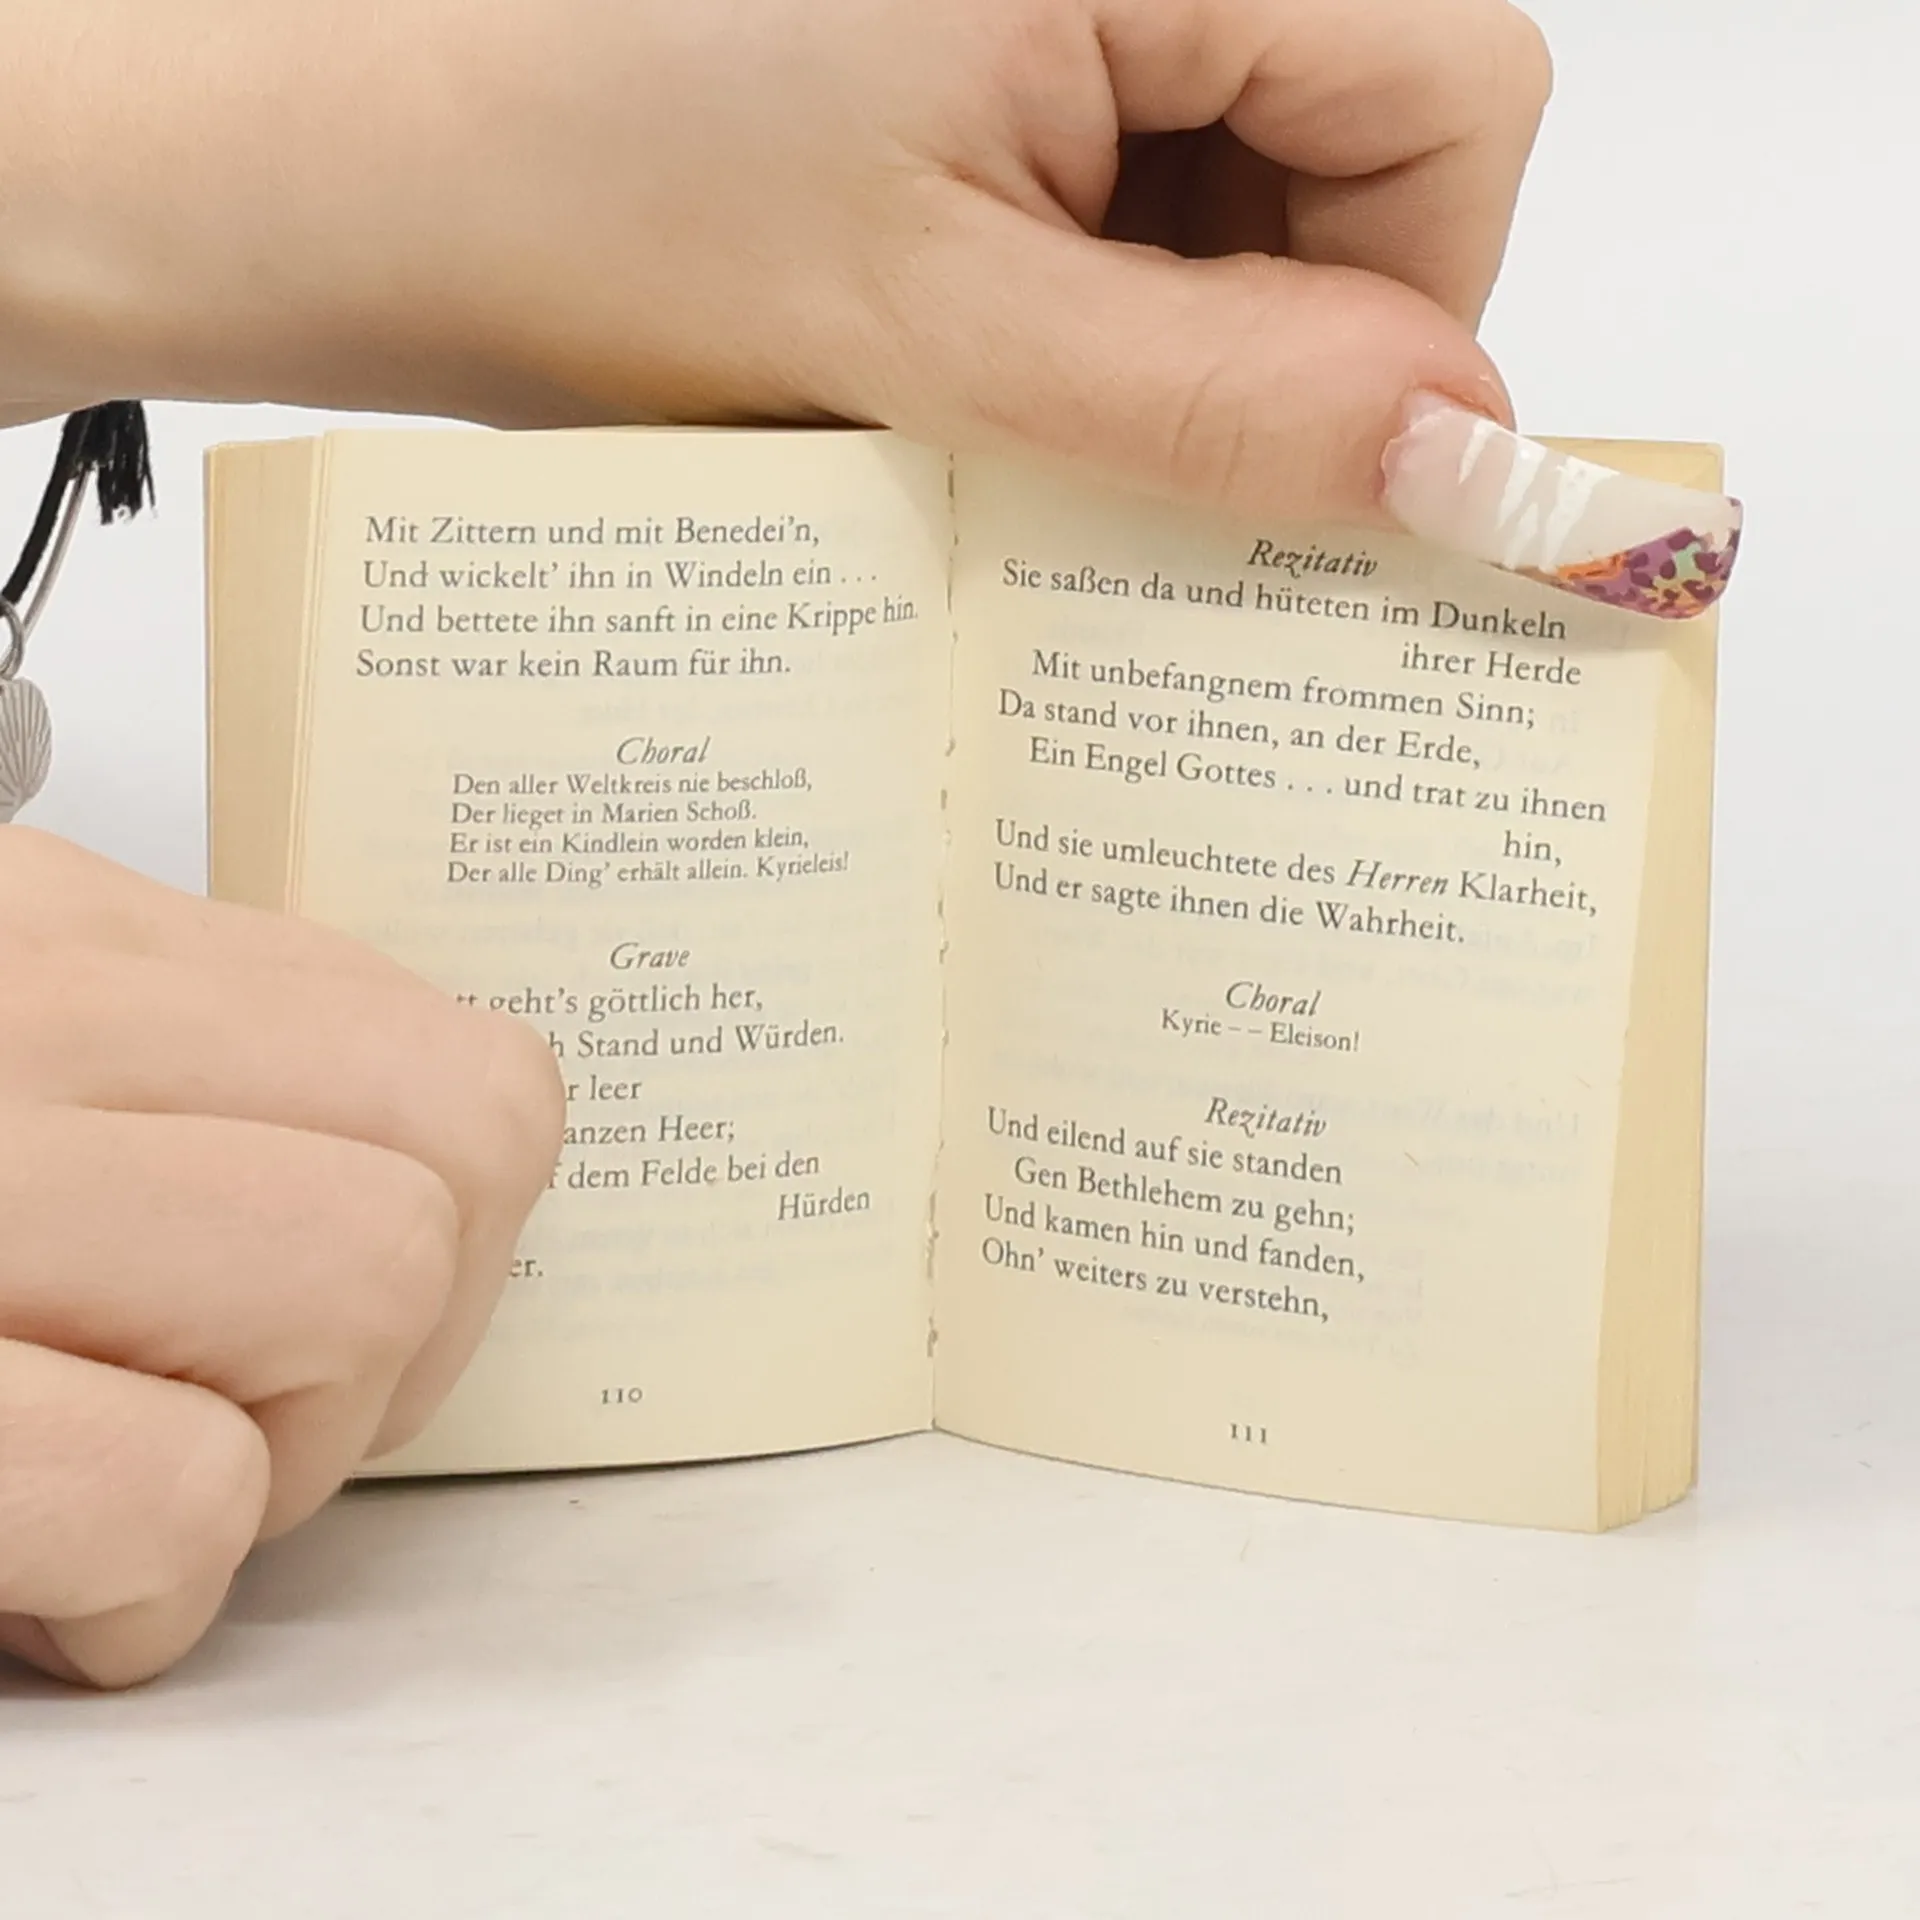 Mit Zittern und mit Benedei’n,
Und wickelt’ ihn in Windeln ein . . .
Und bettete ihn sanft in eine Krippe hin.
Sonst war kein Raum für ihn.
Choral
Den aller Weltkreis nie beschloß,
Der lieget in Marien Schoß.
Er ist ein Kindlein worden klein,
Der alle Ding’ erhält allein. Kyrieleis!
Grave
geht’s göttlich her,
Stand und Würden.
leer
Heer;
dem Felde bei den
Hürden
110
Rezitativ
Sie saßen da und hüteten im Dunkeln
ihrer Herde
Mit unbefangnem frommen Sinn;
Da stand vor ihnen, an der Erde,
Ein Engel Gottes . . . und trat zu ihnen
hin,
Und sie umleuchtete des Herren Klarheit,
Und er sagte ihnen die Wahrheit.
Choral
Kyrie – – Eleison!
Rezitativ
Und eilend auf sie standen
Gen Bethlehem zu gehn;
Und kamen hin und fanden,
Ohn’ weiters zu verstehn,
111